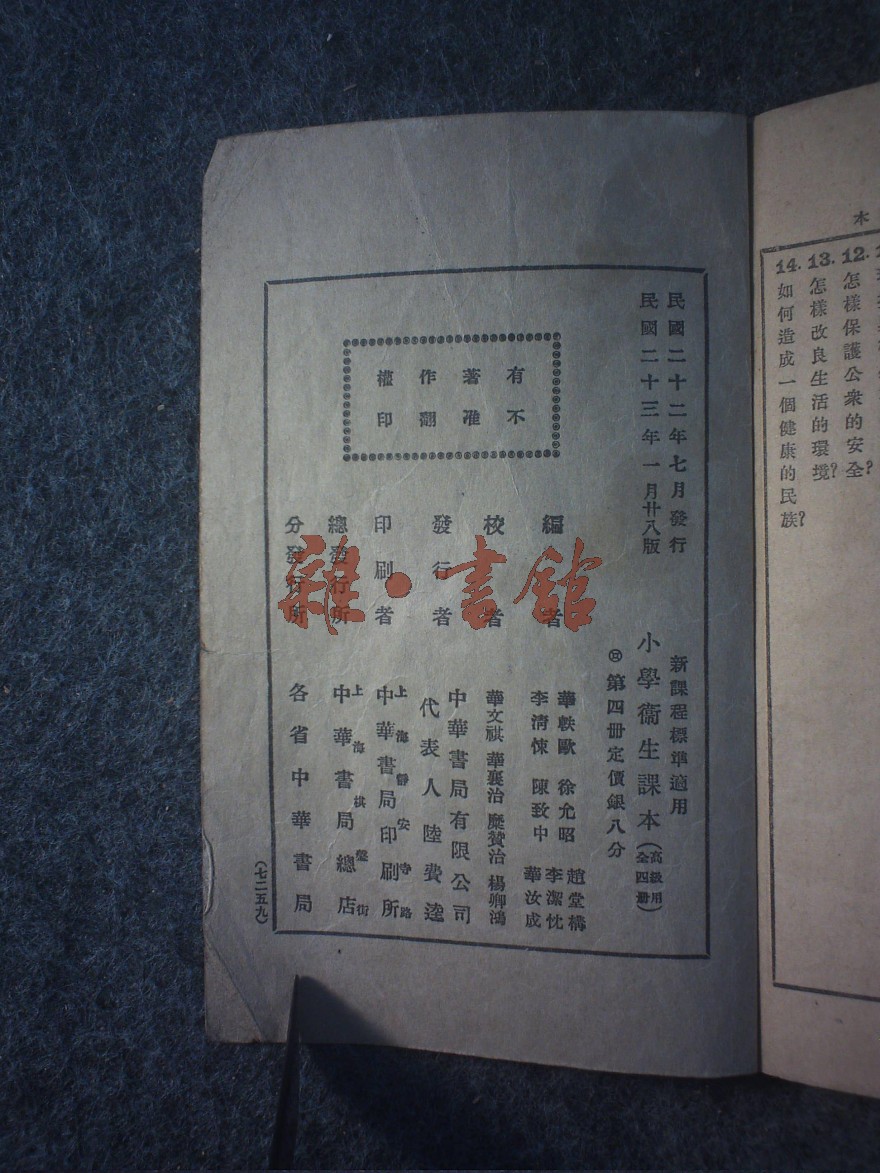 本
12. 怎樣保護公衆的安全?
13. 怎樣改良生活的環境?
14. 如何造成一個健康的民族?
民國二十二年七月發行
民國二十三年一月廿八版
新課程標準適用
小學衞生課本（高級用全四冊）
第四册定價銀八分
有著作權
不准翻印
編者
華軼歐 徐允昭 趙堂構
李清悚 陳致中 李潔忱
華汝成
校者
華文祺 華襄治 糜贊治 楊卿鴻
發行者
中華書局有限公司
代表人 陸費逵
印刷者
上海靜安寺路
中華書局印刷所
總發行所
上海棋盤街
中華書局總店
分發行所
各省中華書局
（七二五九）
雜·書館